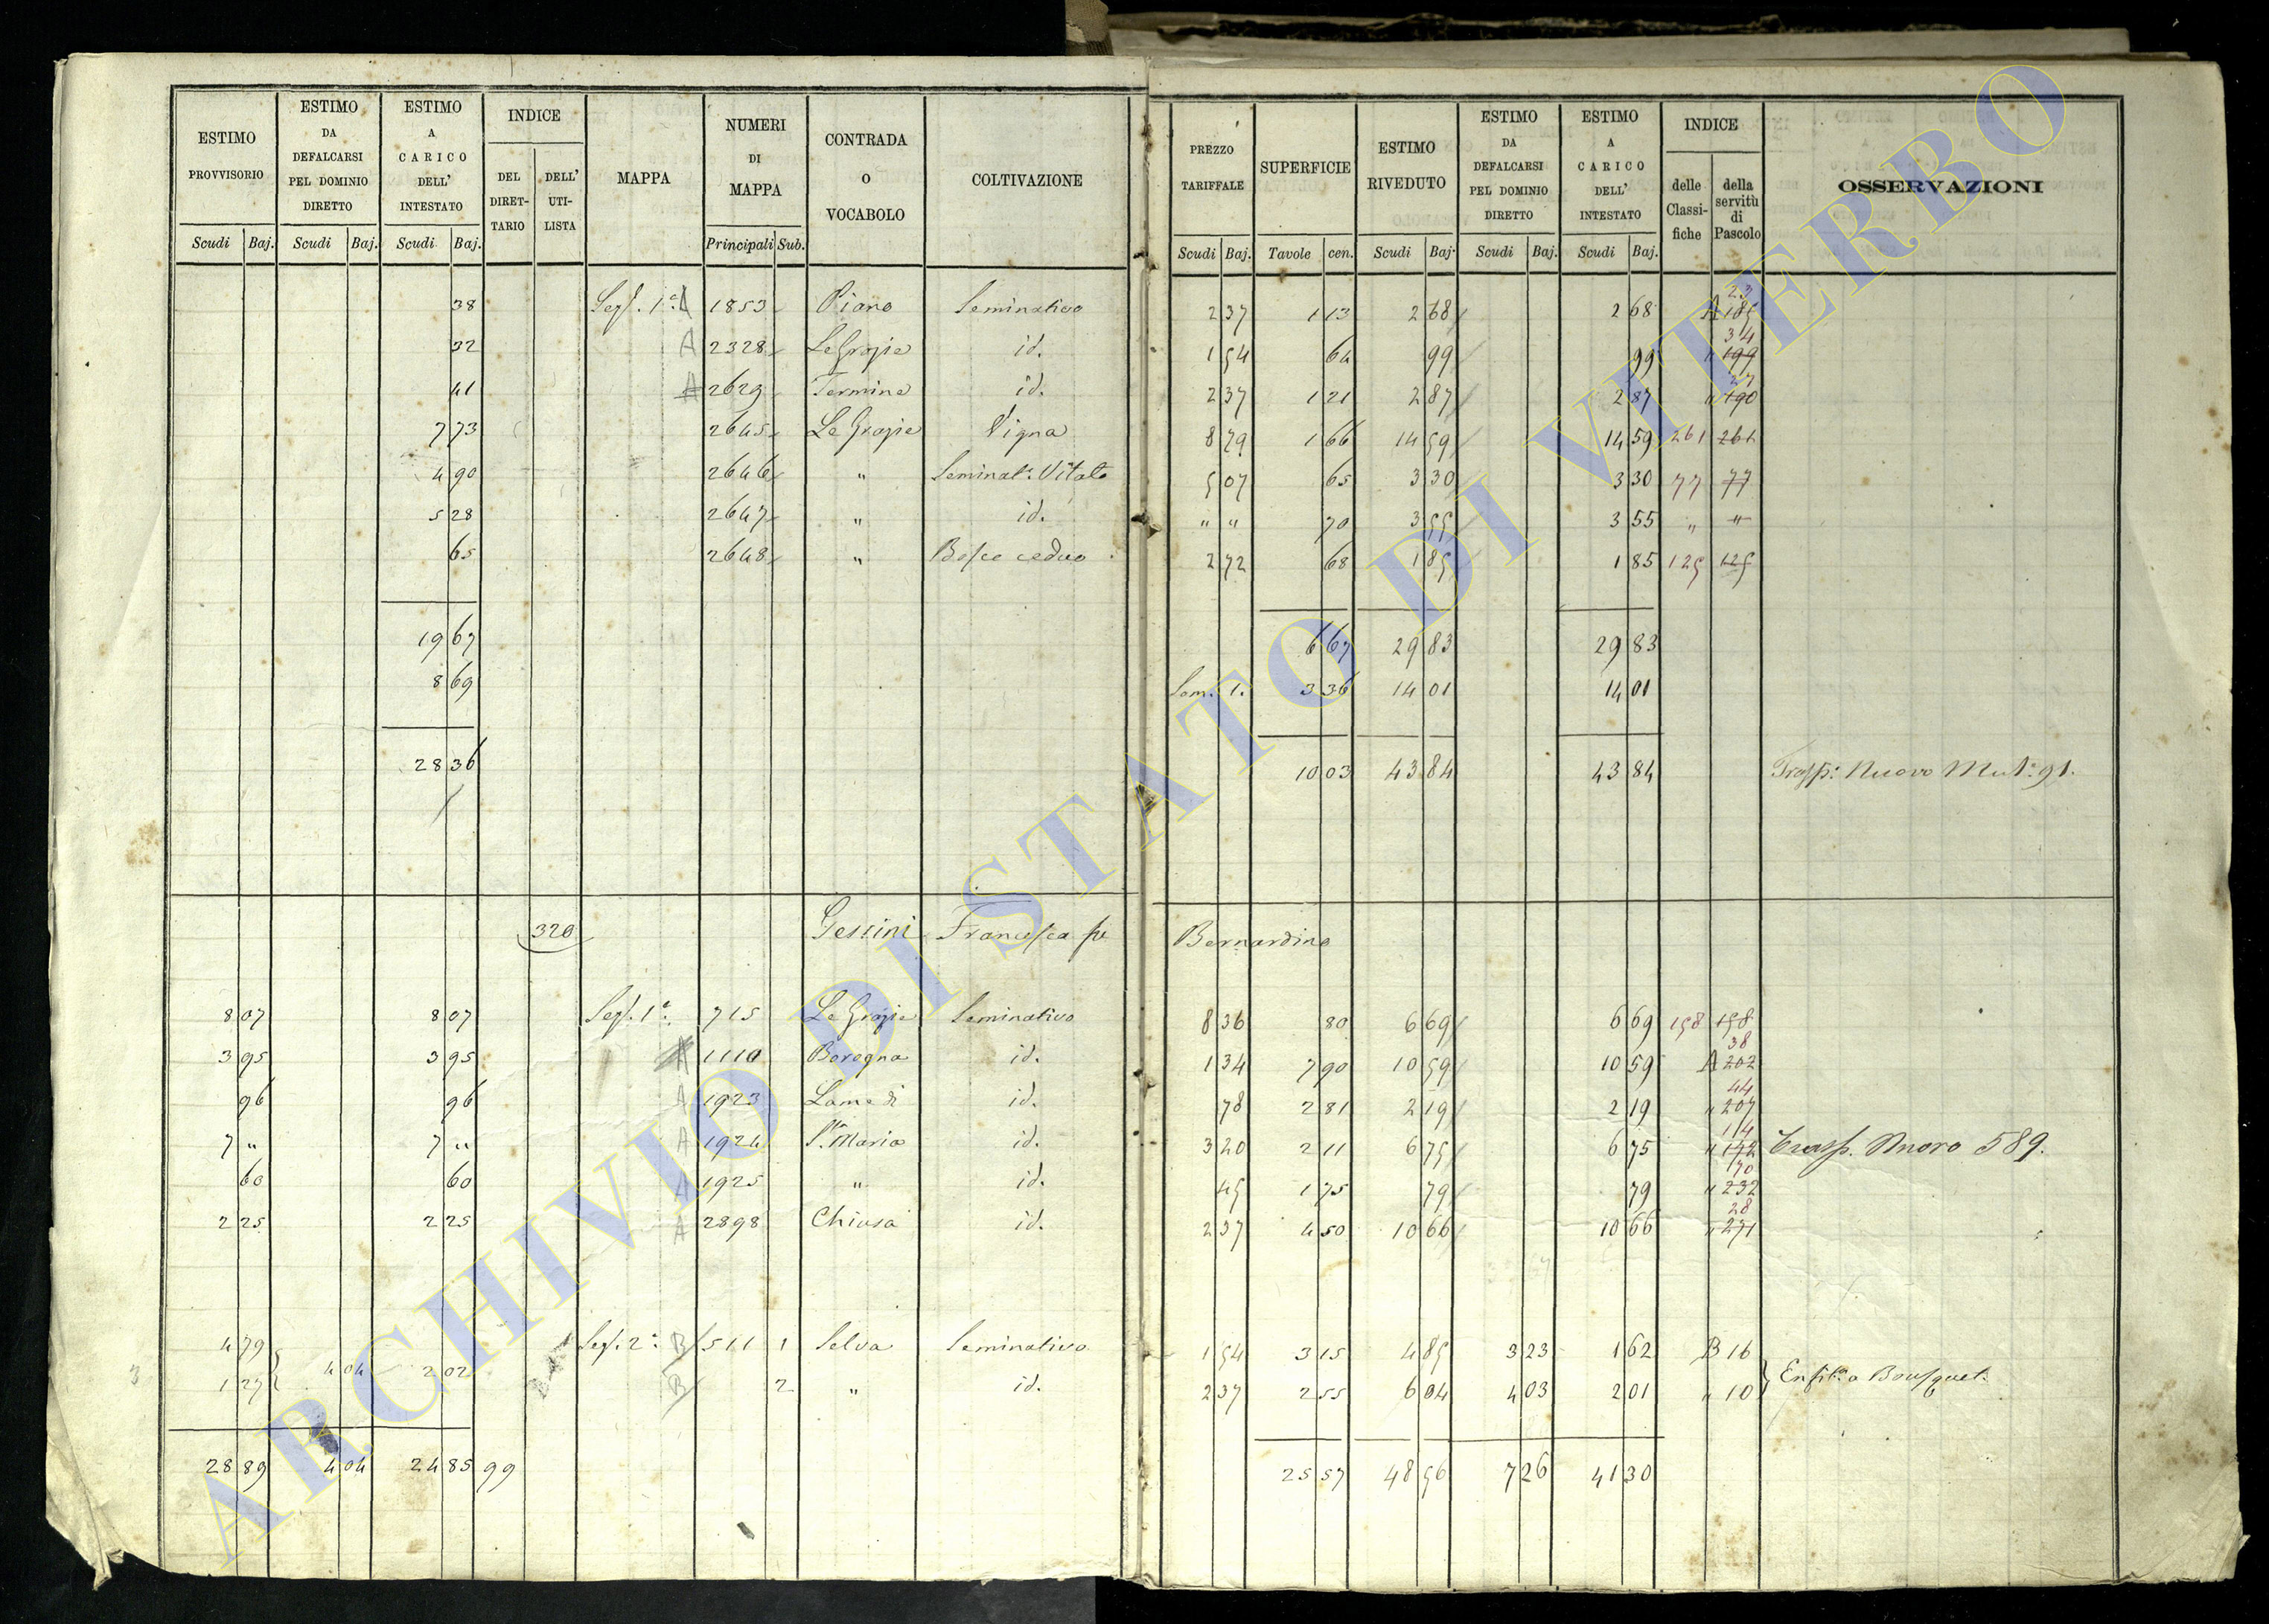 ESTIMO PROVVISORIO | ESTIMO DA DEFALCARSI PEL DOMINIO DIRETTO | ESTIMO A CARICO DELL' INTESTATO | INDICE DEL DIRETTARIO | DELL' UTILISTA | MAPPA | NUMERI DI MAPPA | CONTRADA O VOCABOLO | COLTIVAZIONE | PREZZO TARIFFALE | SUPERFICIE | ESTIMO RIVEDUTO | ESTIMO DA DEFALCARSI PEL DOMINIO DIRETTO | ESTIMO A CARICO DELL' INTESTATO | INDICE delle Classifiche | della servitù di Pascolo | OSSERVAZIONI
Scudi Baj. | Scudi Baj. | Scudi Baj. | Principali Sub. | Scudi Baj. | Tavole cen. | Scudi Baj. | Scudi Baj. | Scudi Baj.
38 | Sez. 1ª A | 1853 | Piano | Seminativo | 2 37 | 1 13 | 2 68 | 2 68 | A 185 23
32 | A | 2328 | Le Grazie | id. | 1 54 | 64 | 99 | 99 | " 199 34
41 | A | 2629 | Termine | id. | 2 37 | 1 21 | 2 87 | 2 87 | " 190 27
7 73 | 2645 | Le Grazie | Vigna | 8 79 | 1 66 | 14 59 | 14 59 | 261 | 261
4 90 | 2646 | " | Seminat: Vitato | 5 07 | 65 | 3 30 | 3 30 | 77 | 77
5 28 | 2647 | " | id. | " " | 70 | 3 55 | 3 55 | " | "
65 | 2648 | " | Bosco ceduo | 2 72 | 68 | 1 85 | 1 85 | 125 | 125
19 67 | 6 67 | 29 83 | 29 83
8 69 | Som. 1. | 3 36 | 14 01 | 14 01
28 36 | 10 03 | 43 84 | 43 84 | Trasp: Nuovo Mut: 91.
320 | Gessini Francesca fu Bernardino
8 07 | 8 07 | Sez. 1ª | 715 | Le Grazie | Seminativo | 8 36 | 80 | 6 69 | 6 69 | 158 | 158
3 95 | 3 95 | A | 1110 | Boregna | id. | 1 34 | 7 90 | 10 59 | 10 59 | A 202 38
96 | 96 | A | 1923 | Lame di | id. | 78 | 2 81 | 2 19 | 2 19 | " 207 44
7 " | 7 " | A | 1924 | S.ta Maria | id. | 3 20 | 2 11 | 6 75 | 6 75 | " 14 | Trasp. Nuovo 589.
60 | 60 | A | 1925 | " | id. | 45 | 1 75 | 79 | 79 | " 232 70
2 25 | 2 25 | A | 2898 | Chiusa | id. | 2 37 | 4 50 | 10 66 | 10 66 | " 271 28
4 79 | Sez. 2ª B | 511 | 1 | Selva | Seminativo | 1 54 | 3 15 | 4 85 | 3 23 | 1 62 | B 16
4 04 | 2 02
1 27 | B | 2 | " | id. | 2 37 | 2 55 | 6 04 | 4 03 | 2 01 | " 10 | Enfit: a Bousquet.
28 89 | 4 04 | 24 85 | 99 | 25 57 | 48 56 | 7 26 | 41 30
ARCHIVIO DI STATO DI VITERBO